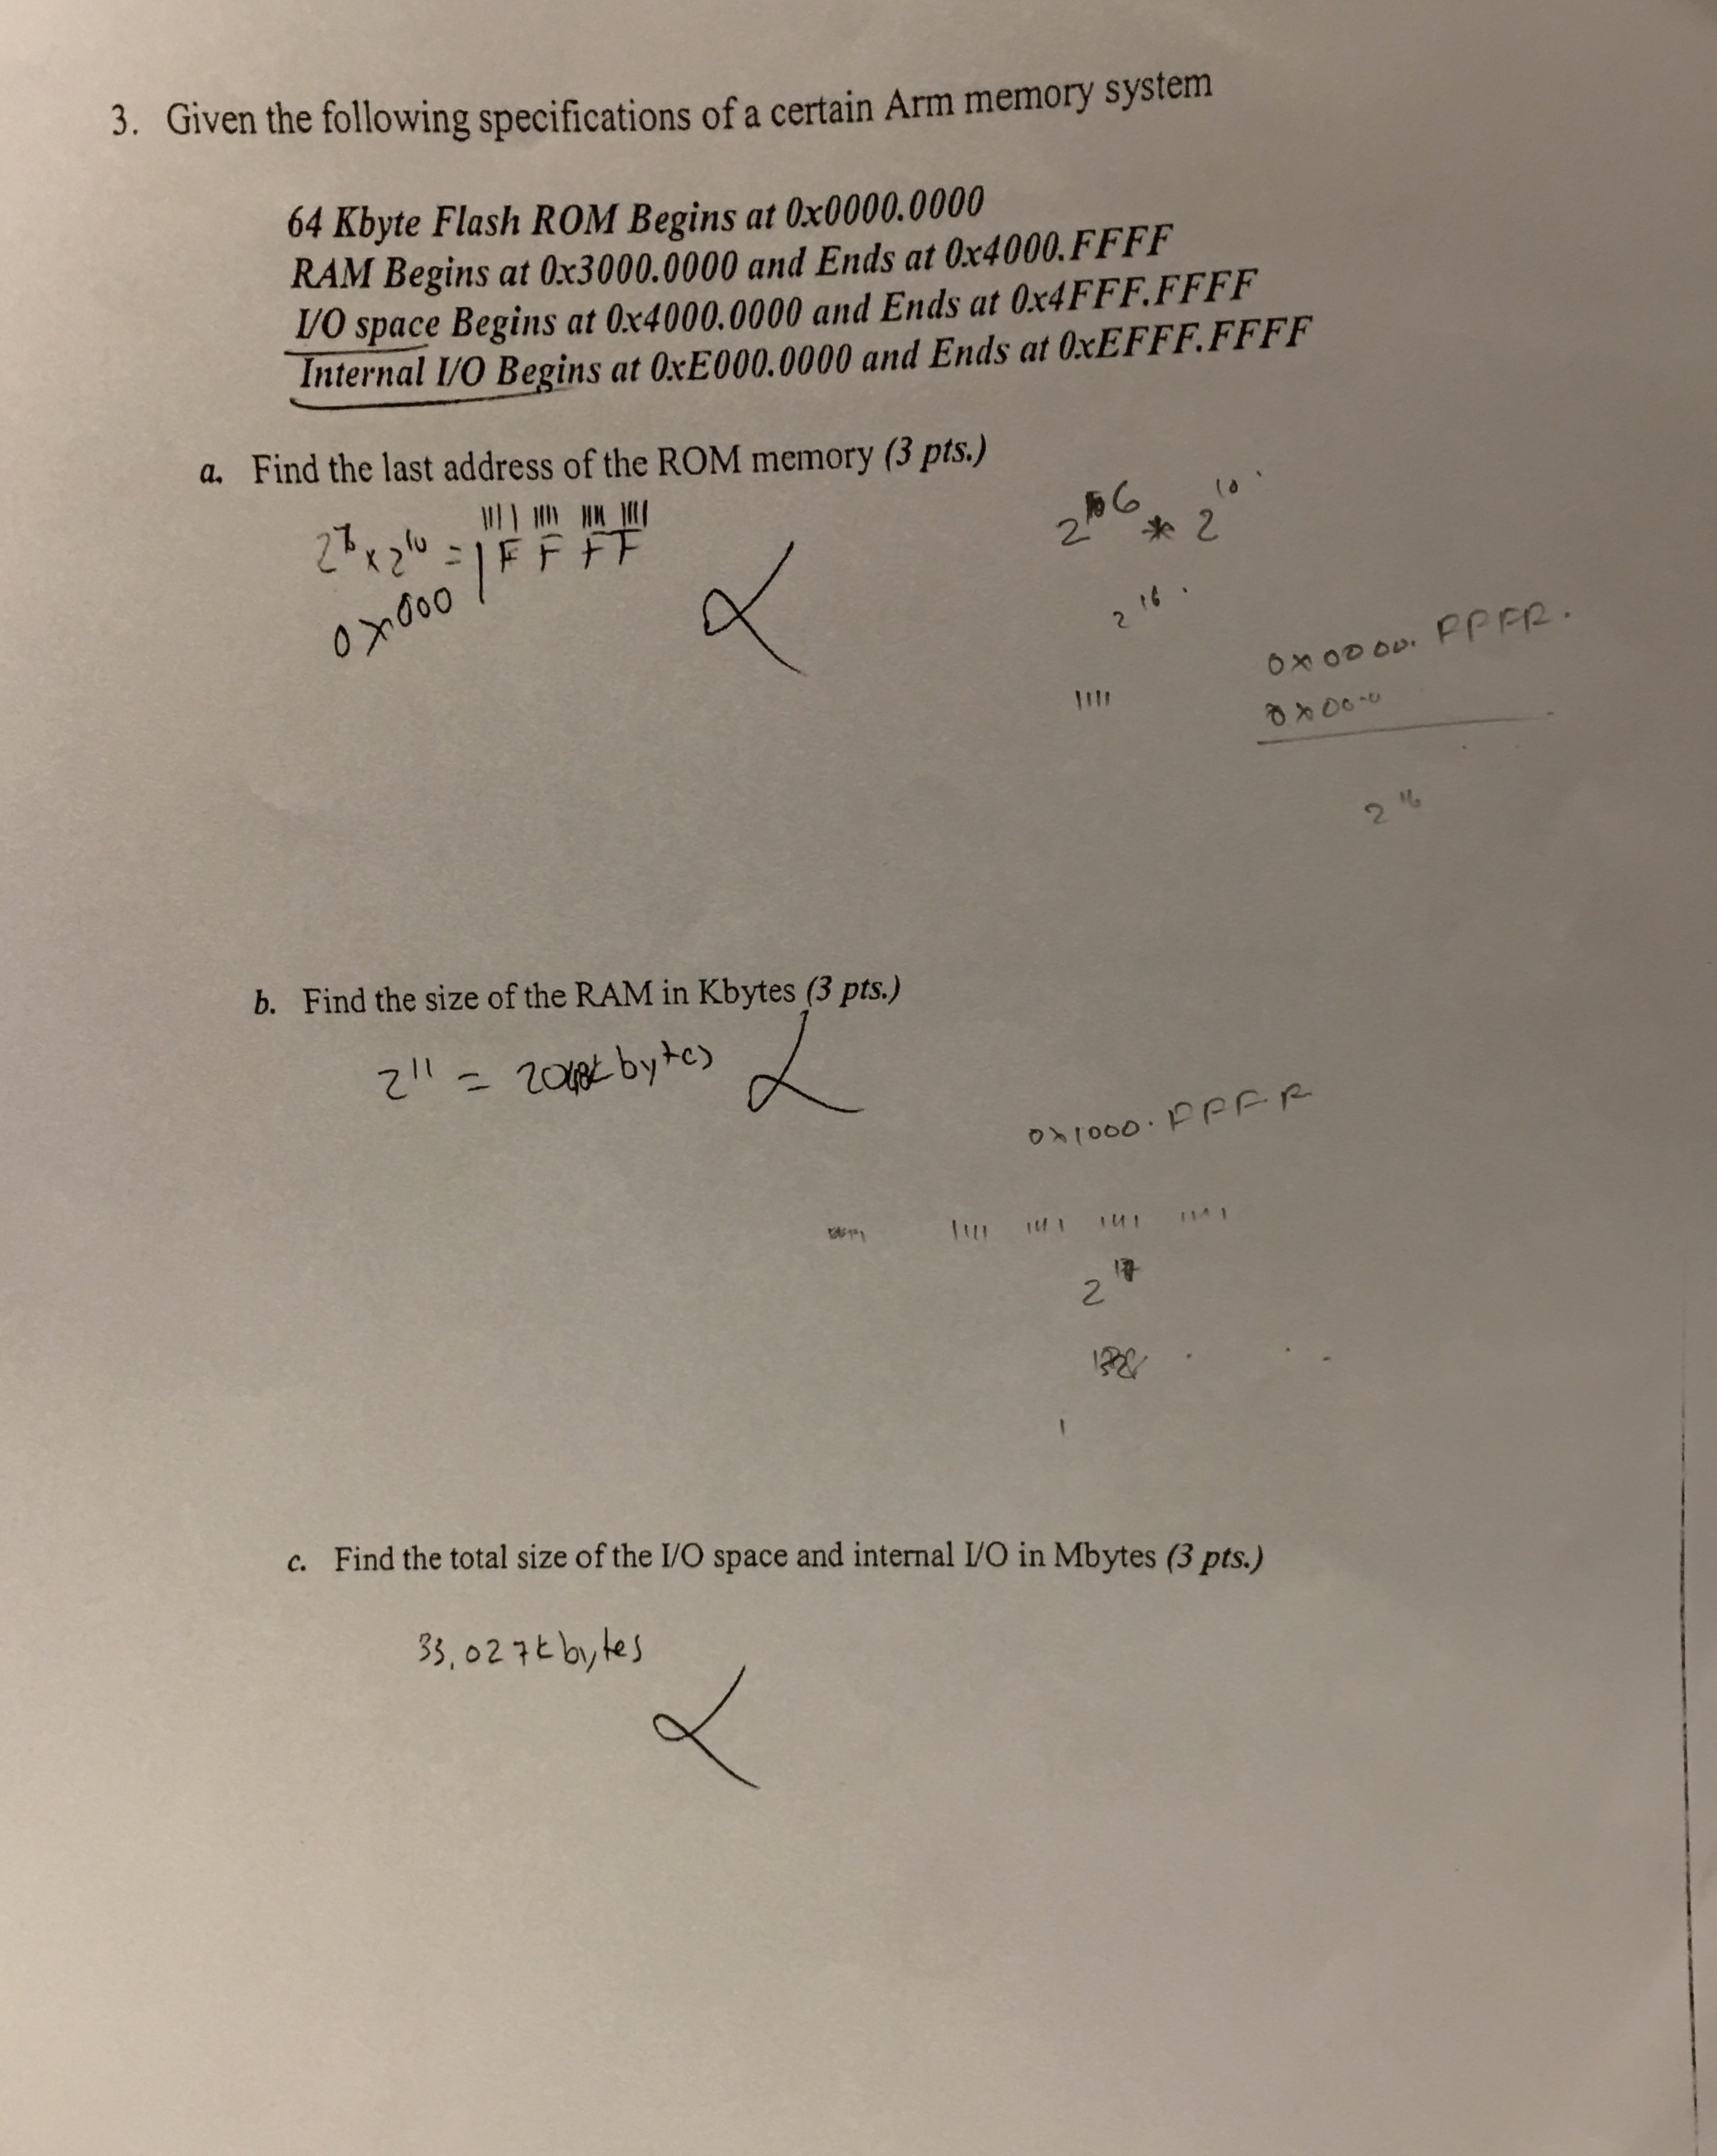 3. Given the following specifications of a certain Arm memory system
64 Kbyte Flash ROM Begins at 0x0000.0000
RAM Begins at 0x3000.0000 and Ends at 0x4000.FFFF
I/O space Begins at 0x4000.0000 and Ends at 0x4FFF.FFFF
Internal I/O Begins at 0xE000.0000 and Ends at 0xEFFF.FFFF
a. Find the last address of the ROM memory (3 pts.)
1111 1111 1111 1111
x 2^10 = 1 F F F F
0x000
2^6 * 2^10
2^16
0x0000.FFFF.
1111
0x00
2^16
b. Find the size of the RAM in Kbytes (3 pts.)
2^11 = 2048k bytes
0x1000.FFFF
1111 1111 1111 1111
2
c. Find the total size of the I/O space and internal I/O in Mbytes (3 pts.)
33,027k bytes